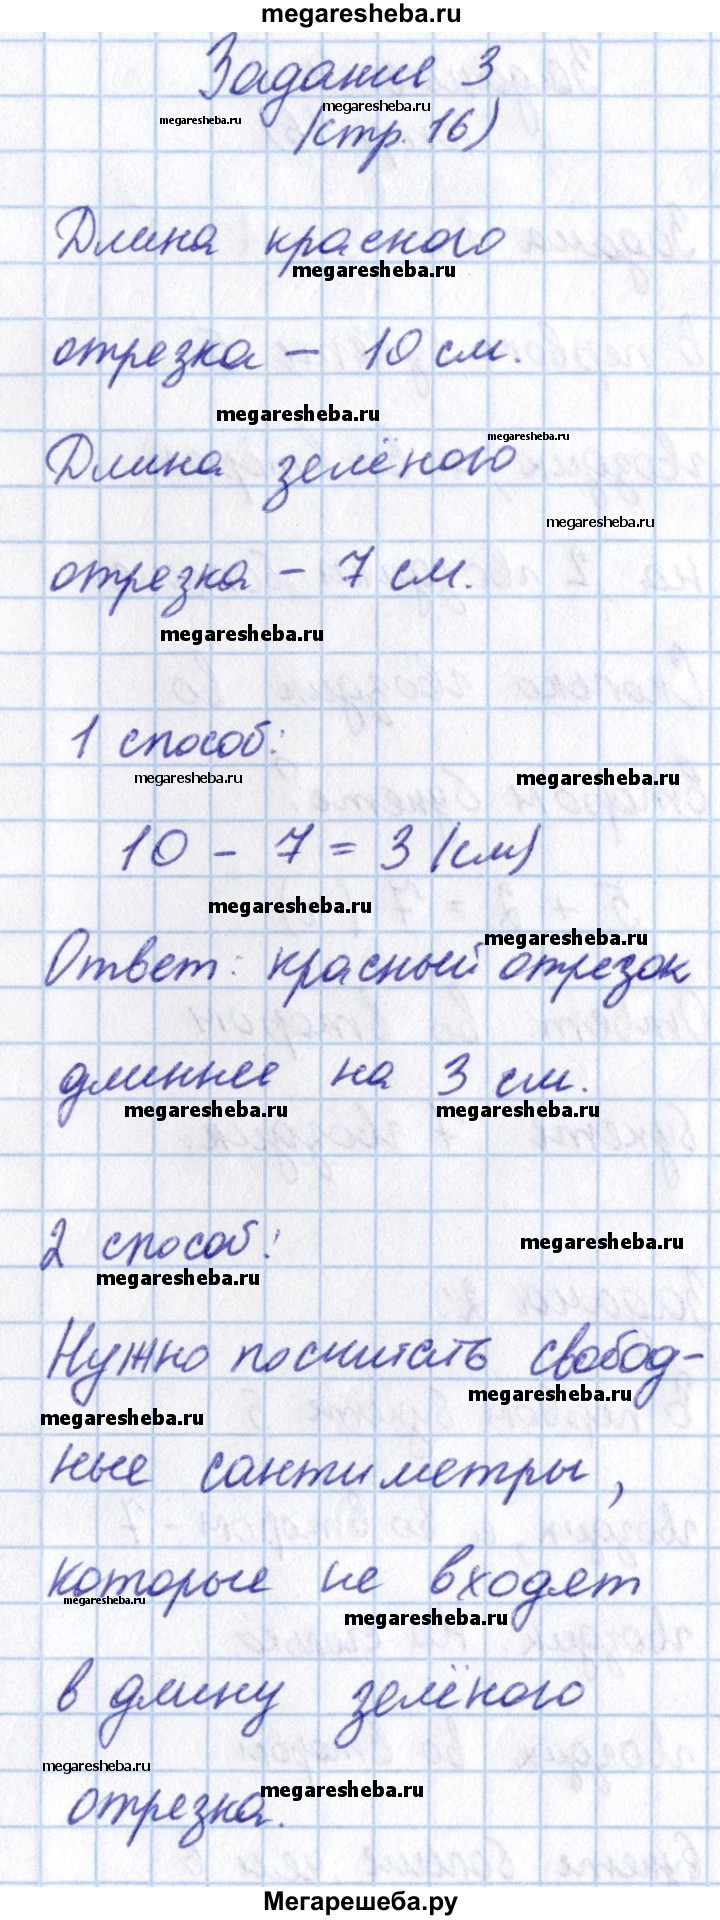 megaresheba.ru
Задание 3
megaresheba.ru
megaresheba.ru
(стр. 16)
Длина красного
megaresheba.ru
отрезка – 10 см.
megaresheba.ru
megaresheba.ru
Длина зелёного
megaresheba.ru
отрезка – 7 см.
megaresheba.ru
1 способ:
megaresheba.ru megaresheba.ru
10 - 7 = 3 (см)
megaresheba.ru
megaresheba.ru
Ответ: красный отрезок
длиннее на 3 см.
megaresheba.ru megaresheba.ru
2 способ:
megaresheba.ru
megaresheba.ru
Нужно посчитать свобод-
megaresheba.ru
megaresheba.ru
ные сантиметры,
которые не входят
megaresheba.ru
megaresheba.ru
в длину зелёного
megaresheba.ru
megaresheba.ru
отрезка.
Мегарешеба.ру